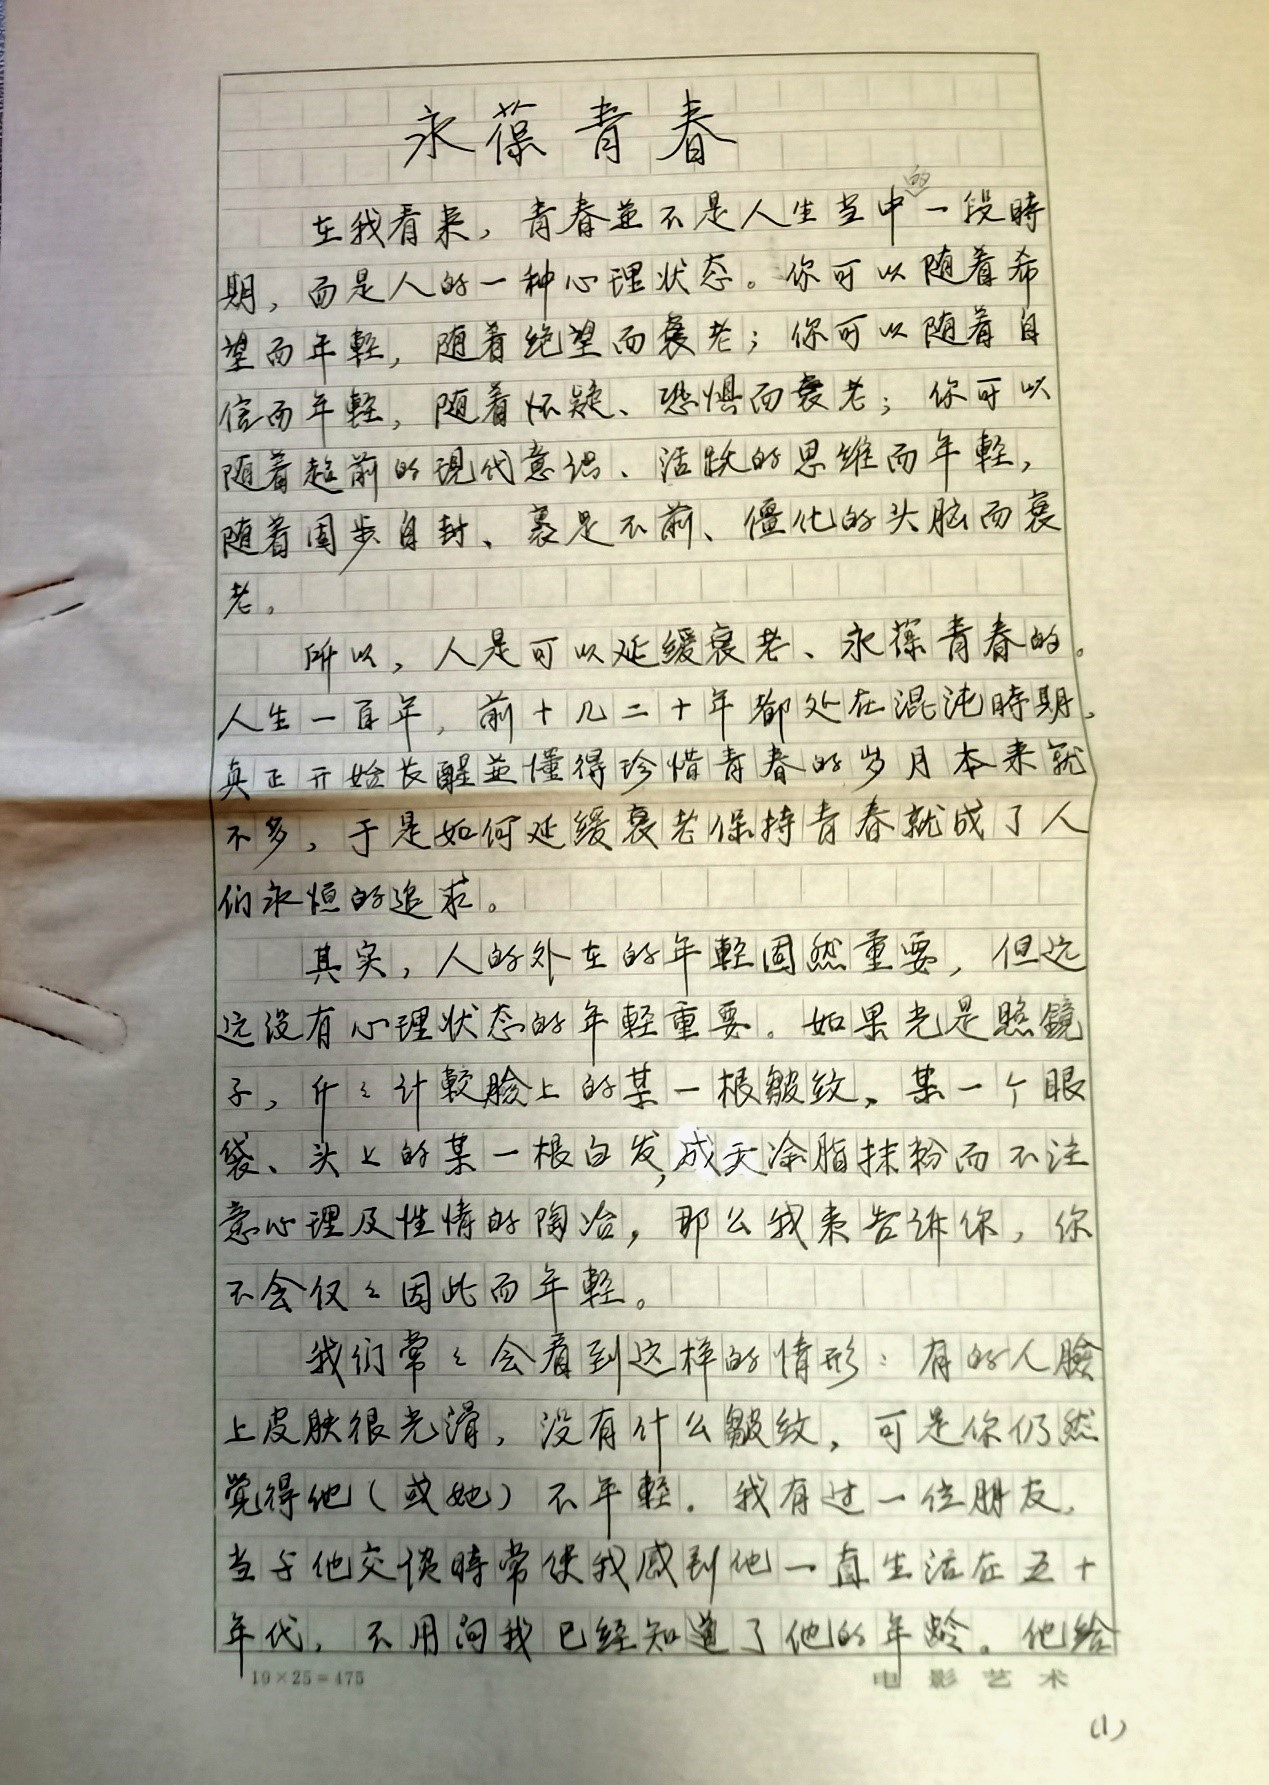 永葆青春
在我看来，青春並不是人生当中的一段時
期，而是人的一种心理状态。你可以随着希
望而年軽，随着绝望而衰老；你可以随着自
信而年軽，随着怀疑、恐惧而衰老；你可以
随着超前的現代意识、活跃的思维而年軽，
随着固步自封、裹足不前、僵化的头脑而衰
老。
所以，人是可以延缓衰老、永葆青春的。
人生一百年，前十几二十年都处在混沌時期，
真正开始苏醒並懂得珍惜青春的岁月本来就
不多，于是如何延缓衰老保持青春就成了人
们永恒的追求。
其实，人的外在的年軽固然重要，但远
远没有心理状态的年軽重要。如果光是照鏡
子，斤々计較脸上的某一根皱纹，某一个眼
袋、头上的某一根白发，成天涂脂抹粉而不注
意心理及性情的陶冶，那么我来告诉你，你
不会仅々因此而年軽。
我们常々会看到这样的情形：有的人臉
上皮肤很光滑，没有什么皱纹，可是你仍然
觉得他（或她）不年軽。我有过一位朋友，
当与他交谈時常使我感到他一直生活在五十
年代，不用问我已经知道了他的年龄。他给
19×25=475
电影艺术
(1)